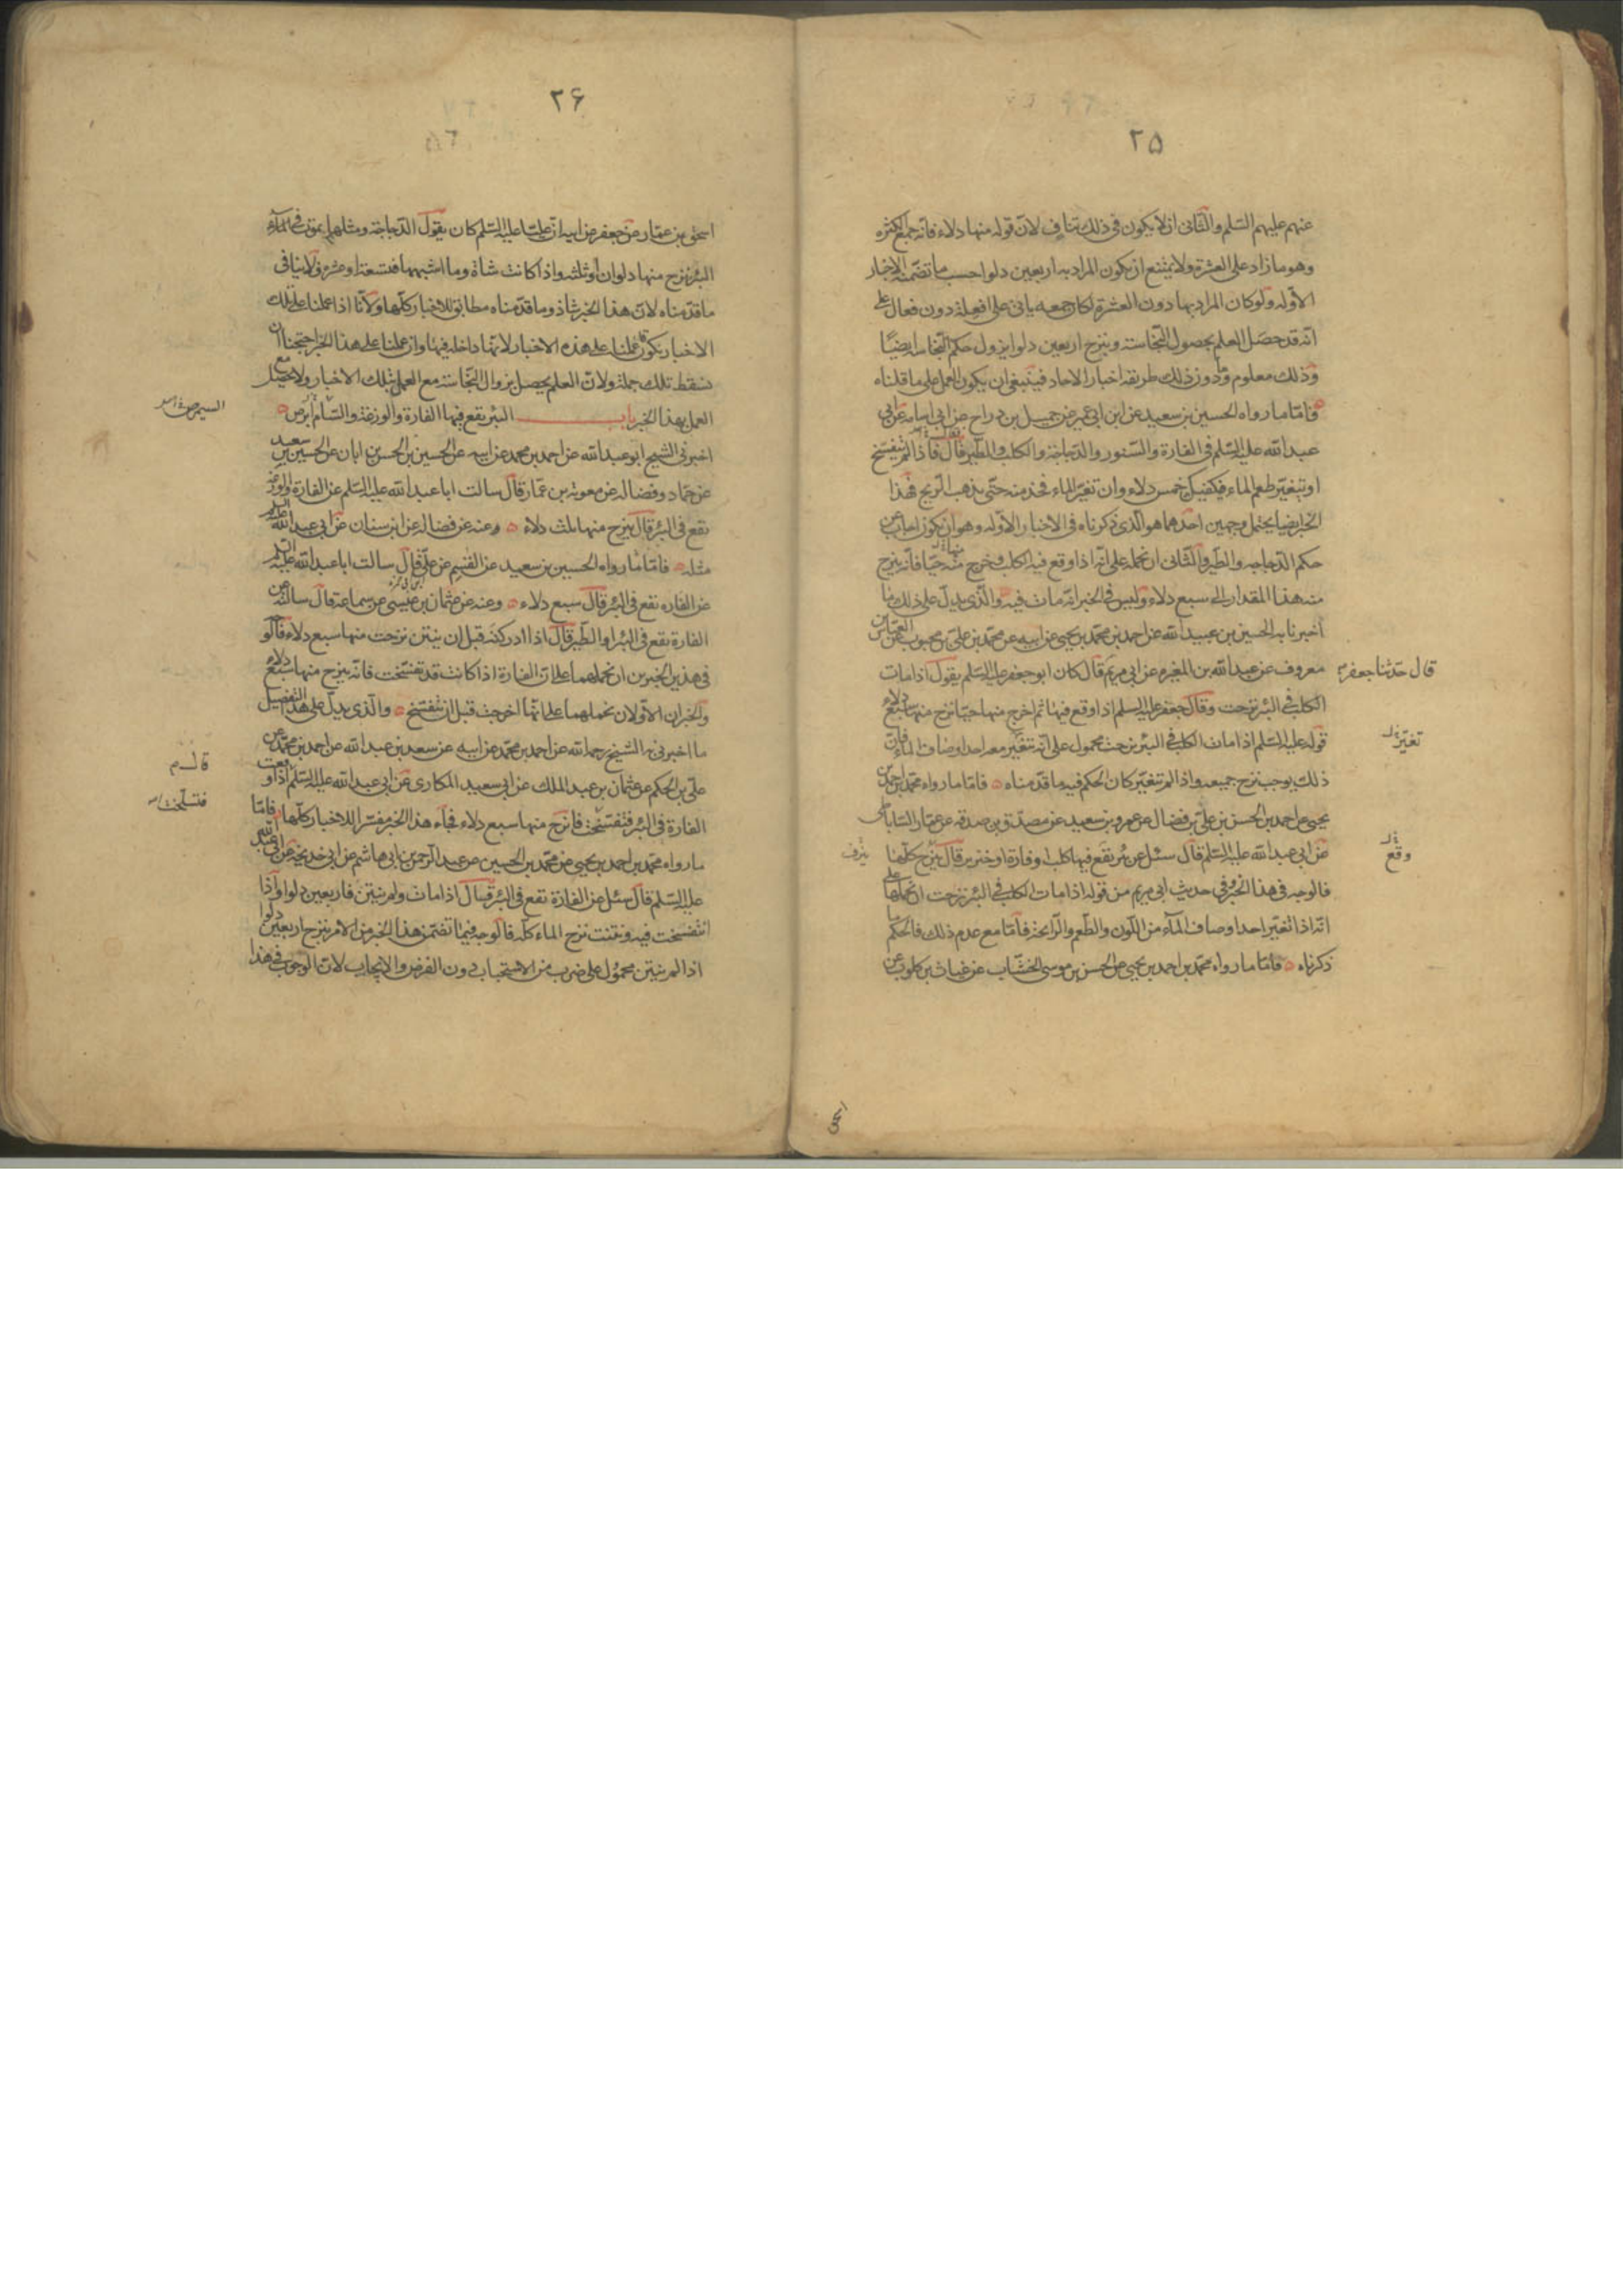 ٢۵
عنهم عليهم السلم والثانى ان لا يكون فى ذلك تناف لان قوله منها دلاء فانه جمع الكثره
وهو ما زاد على العشرة ولا يمتنع ان يكون المراد به اربعين دلوا حسب ما تضمنه الاخبار
الاوله ولو كان المراد بها دون العشرة لكان جمعه ياتى على افعلة دون فعال على
انه قد حصل العلم بحصول النجاسة وبنزح اربعين دلوا يزول حكم النجاسه ايضا
وذلك معلوم وما دون ذلك طريقه اخبار الاحاد فينبغى ان يكون العمل على ما قلناه
فاما ما رواه الحسين بن سعيد عن ابن ابى عمير عن جميل بن دراج عن ابى اسامه عن ابى
عبد الله عليه السلم فى الفارة والسنور والدجاجة والكلب والطير قال فاذا لم يتفسخ
او يتغير طعم الماء فيكفيك خمس دلاء وان تغير الماء فخذ منه حتى يذهب الريح فهذا
الخبر ايضا يحتمل وجهين احدهما هو الذى ذكرناه فى الاخبار الاوله وهو ان يكون اجاب عن
حكم الدجاجه والطير والثانى ان نحمله على انه اذا وقع فيه الكلب وخرج منه حيا فانه ينزح
منه هذا المقدار الى سبع دلاء وليس فى الخبر انه مات فيه والذى يدل على ذلك ما
اخبرنا به الحسين بن عبيد الله عن احمد بن محمد بن يحيى عن ابيه عن محمد بن على بن محبوب عن العباس بن
معروف عن عبد الله بن المغيره عن ابى مريم قال كان ابو جعفر عليه السلم يقول اذا مات
قال حدثنا جعفر
الكلب فى البئر نزحت وقال جعفر عليه السلم اذا وقع فيها ثم اخرج منها حيا نزح منها سبع دلاء
قوله عليه السلم اذا مات الكلب فى البئر نزحت محمول على انه تتغير معه احد اوصاف الماء فان
تغير
ذلك يوجب نزح جميعه واذا لم تتغير كان الحكم فيه ما قدمناه فاما ما رواه محمد بن احمد بن
يحيى عن احمد بن الحسن بن على بن فضال عن عمرو بن سعيد عن مصدق بن صدقه عن عمار الساباطى
عن ابى عبد الله عليه السلم قال سئل عن بئر يقع فيها كلب او فارة او خنزير قال ينزح كلها
وقع
ينزف
فالوجه فى هذا الخبر وفى حديث ابى مريم من قوله اذا مات الكلب فى البئر نزحت ان نحملها على
انه اذا تغير احد اوصاف الماء من اللون والطعم والرائحة فاما مع عدم ذلك فالحكم ما
ذكرناه فاما ما رواه محمد بن احمد بن يحيى عن الحسن بن موسى الخشاب عن غياث بن كلوب عن
اسحق
٢۶
اسحق بن عمار عن جعفر عن ابيه ان عليا عليه السلم كان يقول الدجاجة ومثلها يموت فى
البئر ينزح منها دلوان او ثلثه واذا كانت شاة وما اشبهها فتسعة او عشرة فلا ينافى
ما قدمناه لان هذا الخبر شاذ وما قدمناه مطابق للاخبار كلها ولانا اذا عملنا على تلك
الاخبار نكون قد عملنا على هذه الاخبار لانها داخله فيها وان عملنا على هذا الخبر احتجنا ان
نسقط تلك جملة ولان العلم يحصل بزوال النجاسة مع العمل بتلك الاخبار ولا يحصل مع
العمل بهذا الخبر باب البئر يقع فيها الفارة والوزغة والسام ابرص
اخبرنى الشيخ ابو عبد الله عن احمد بن محمد عن ابيه عن الحسين بن الحسن بن ابان عن الحسين بن سعيد
عن حماد وفضاله عن معوية بن عمار قال سالت ابا عبد الله عليه السلم عن الفارة والوزغة
تقع فى البئر قال ينزح منها ثلث دلاء وعنه عن فضاله عن ابن سنان عن ابى عبد الله عليه السلم
مثله فاما ما رواه الحسين بن سعيد عن القسم عن على قال سالت ابا عبد الله عليه السلم
عن الفاره تقع فى البئر قال سبع دلاء وعنه عن عثمان بن عيسى عن سماعة قال سالته عن
الفارة تقع فى البئر او الطير قال اذا ادركته قبل ان ينتن نزحت منها سبع دلاء فالو
فى هذين الخبرين ان نحملهما على ان الفارة اذا كانت قد تفسخت فانه ينزح منها سبع دلاء
والخبران الاولان نحملهما على انها اخرجت قبل ان تتفسخ والذى يدل على هذا التفصيل
ما اخبرنى به الشيخ رحمه الله عن احمد بن محمد عن ابيه عن سعد بن عبد الله عن احمد بن محمد عن
على بن الحكم عن عثمان بن عبد الملك عن ابى سعيد المكارى عن ابى عبد الله عليه السلم اذا وقعت
قال م
الفارة فى البئر فتفسخت فانزح منها سبع دلاء فجاء هذا الخبر مفسرا للاخبار كلها فاما
فتسلخت
ما رواه محمد بن احمد بن يحيى عن محمد بن الحسين عن عبد الرحمن بن ابى هاشم عن ابى خديجة عن ابى عبد الله
عليه السلم قال سئل عن الفارة تقع فى البئر قال اذا ماتت ولم تنتن فاربعين دلوا واذا
انتفسخت فيه ونتنت نزح الماء كله فالوجه فيما تضمن هذا الخبر من الامر بنزح اربعين دلوا
اذا لم تنتن محمول على ضرب من الاستحباب دون الفرض والايجاب لان الوجوب فى هذا